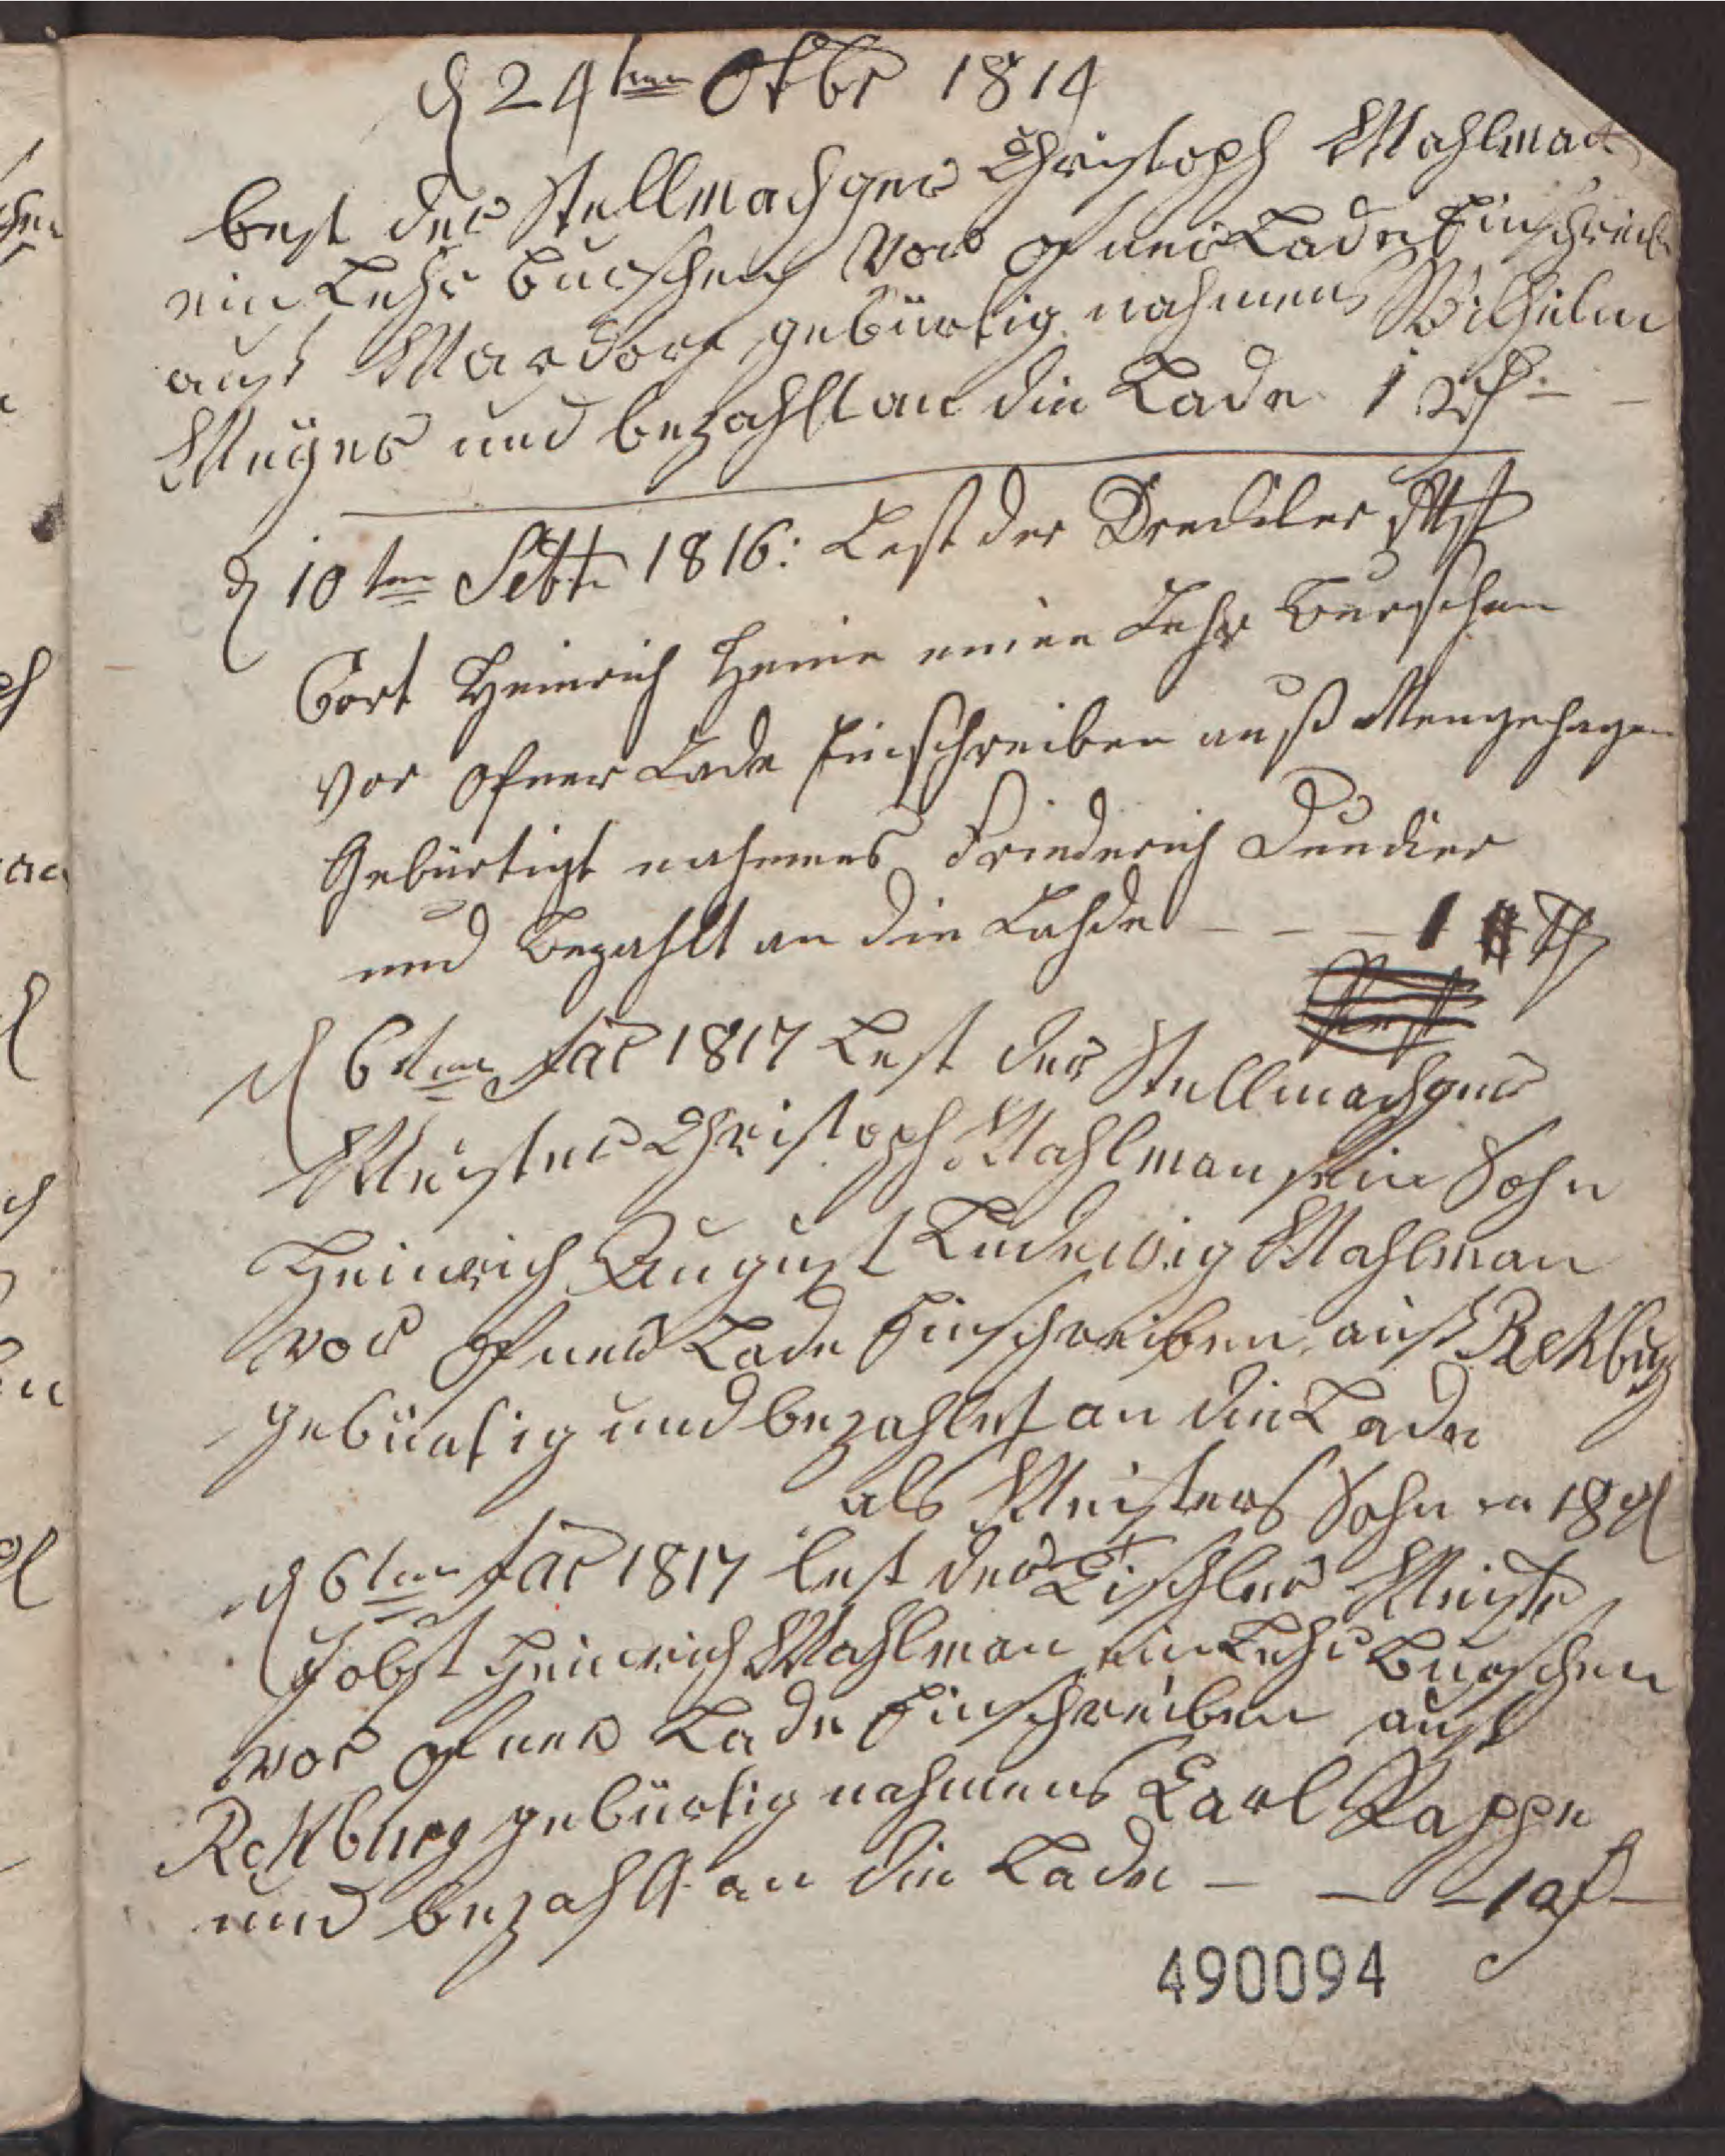 d 24ten Otbr 1814
lest der Stellmachger Christoph Mahlman
ein Lehr burschen vor ofner Lade Einschreiben
aust Mardorf gebürtig nahmens Wilhelm
Meÿer und bezahlt an die Lade 1 rth
d 10ten Sebtr 1816: Lest der Drechler Mst
Cort Heinrich Heine einen Lehr Burschen
vor ofner Lade Einschreiben auß
Gebürtigt nahmens Friederich
und Bezahlt an die Lahde – – – 1 Th
d 6ten Jar 1817 Lest der Stellmachger
Meister Christoph Mahlman sein Sohn
Heinrich August Ludewig Mahlman
vor ofner Lade Einschreiben aust Rehburg
gebürtig und bezahlet an die Lade
als Meisters Sohn 18 gl
d 6ten Jar 1817 lest der Tischler Meistr
Jobst Heinrich Mahlman ein Lehr Burschen
vor ofner Lade Einschreiben aust
Rehburg gebürtig nahmens Carl Pappe
und bezahlt an die Lade – – – 1 rth
490094